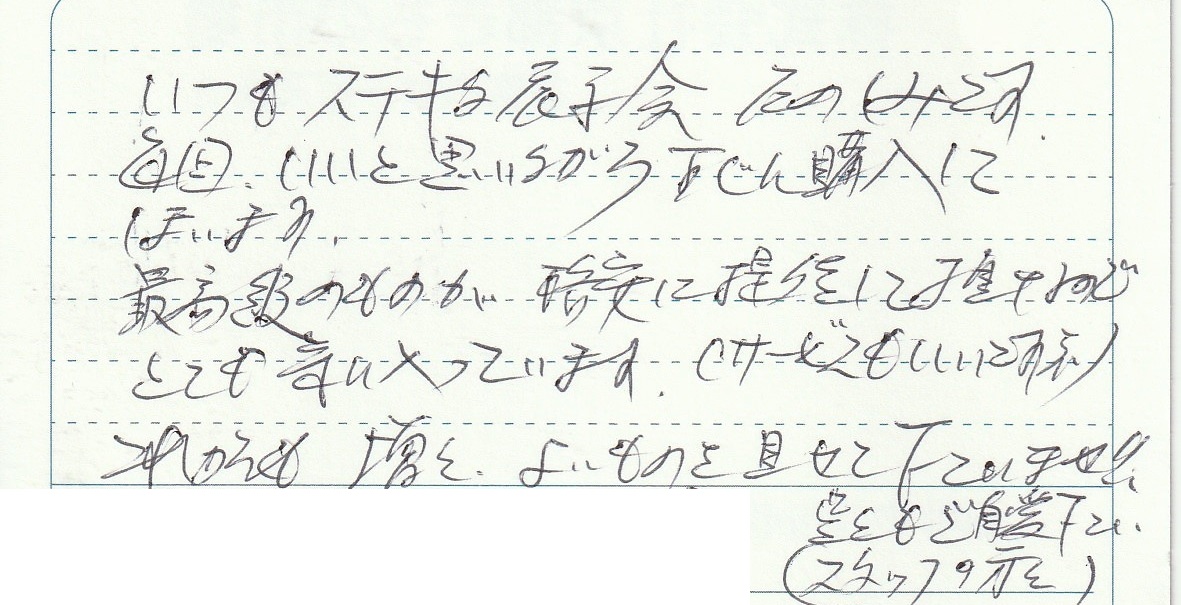 いつも ステキな展示会 たのしみです。
毎回、いいと思いながら 購入して
しまいます。
最高級のものが 格安に提供して頂けるので
とても気に入っています。(サービスもいいですネ)
これからも 増々、よいものを見せて下さいませ。
皆々もご自愛下さい
(スタッフの方々)